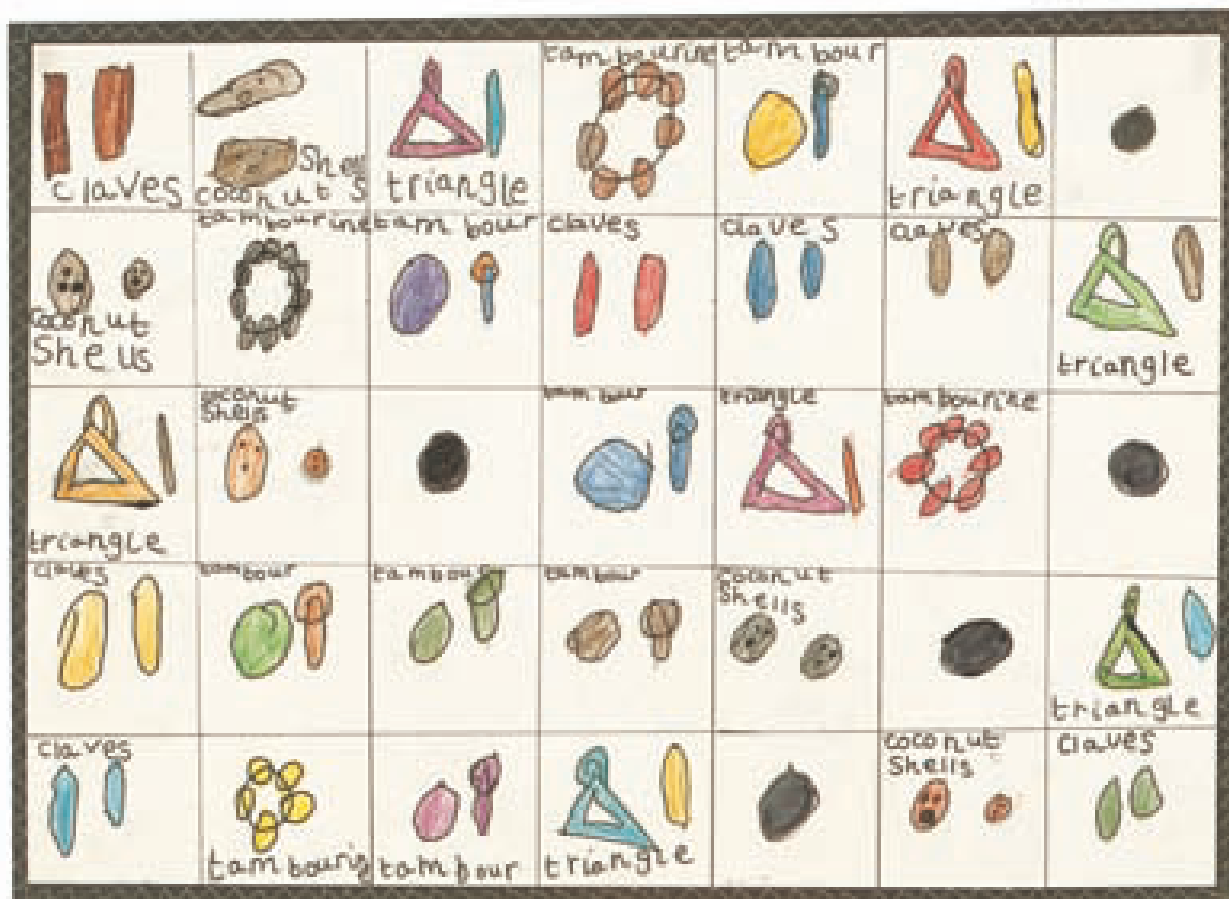 claves
Shell
coconut s
triangle
tambourine
tambour
triangle
coconut
Shells
tambourine
tambour
claves
claves
claves
triangle
triangle
coconut
Shells
tambour
triangle
tambourine
claves
tambour
tambour
tambour
coconut
Shells
triangle
claves
tambourin
tambour
triangle
coconut
Shells
claves